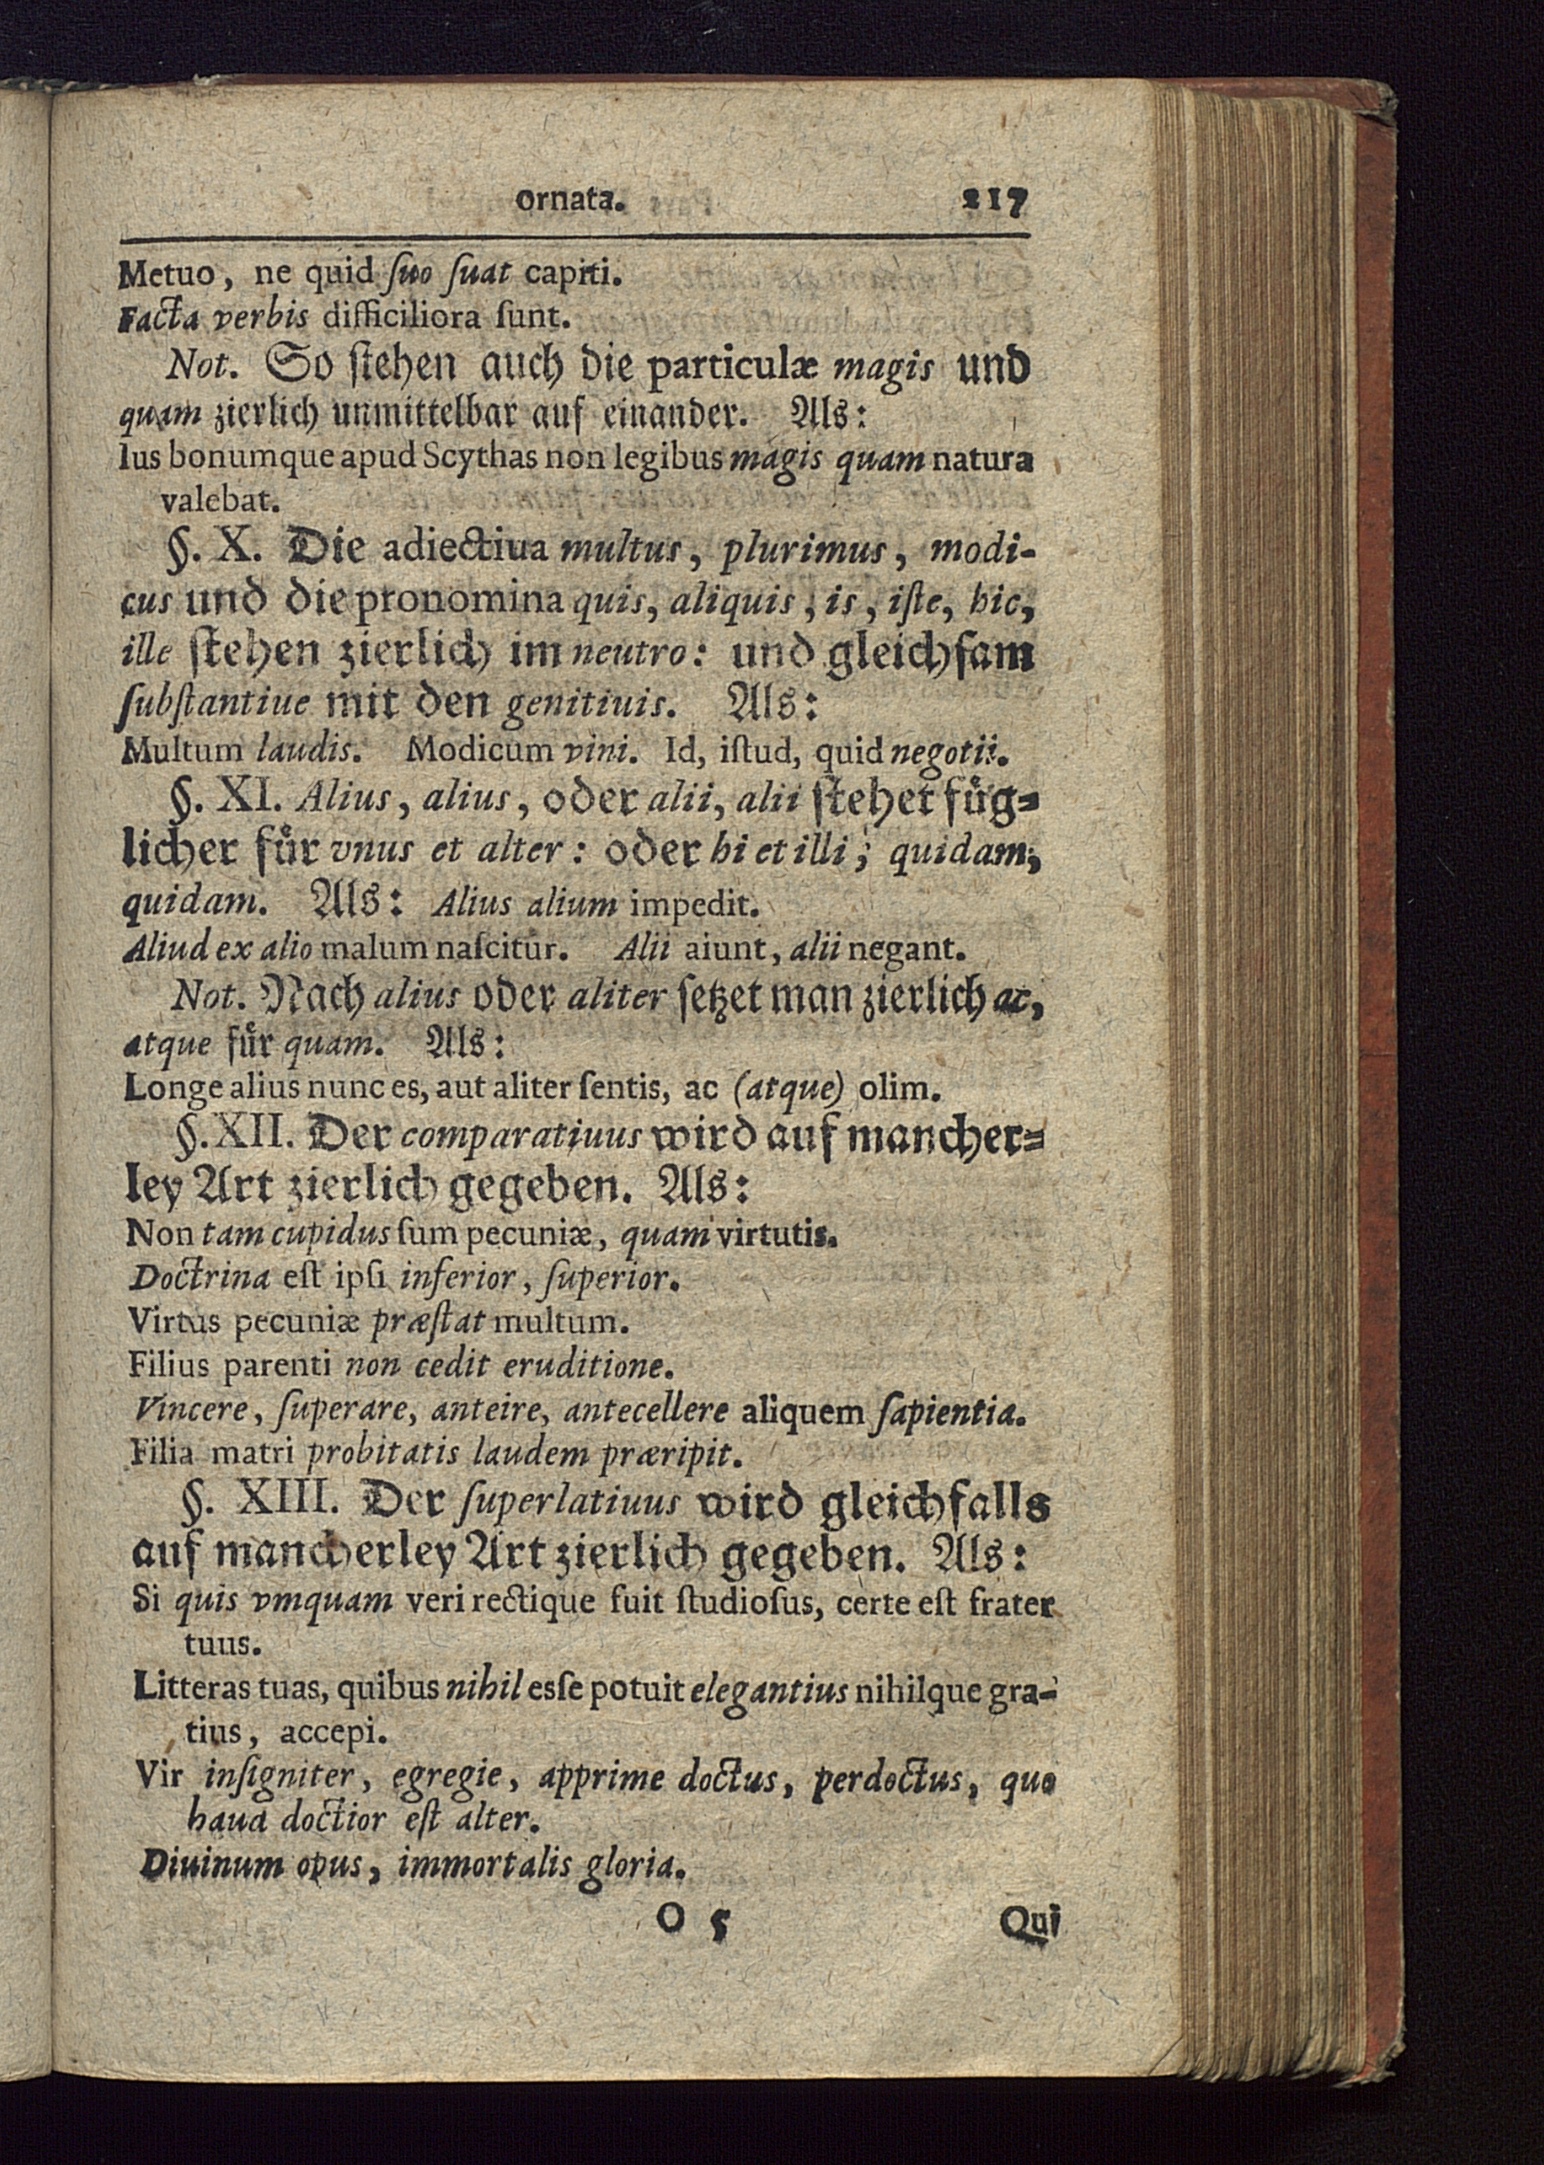 ornata. 217
Metuo, ne quid ſuo ſuat capiti.
Facta verbis difficiliora ſunt.
Not. So ſtehen auch die particulæ magis und
quam zierlich unmittelbar auf einander. Als:
Ius bonumque apud Scythas non legibus magis quam natura
valebat.
§. X. Die adiectiua multus, plurimus, modi-
cus und die pronomina quis, aliquis, is, iſte, hic,
ille ſtehen zierlich im neutro: und gleichſam
ſubſtantiue mit den genitiuis. Als:
Multum laudis. Modicum vini. Id, iſtud, quid negotii.
§. XI. Alius, alius, oder alii, alii ſtehet fuͤg-
licher fuͤr vnus et alter: oder hi et illi; quidam,
quidam. Als: Alius alium impedit.
Aliud ex alio malum naſcitur. Alii aiunt, alii negant.
Not. Nach alius oder aliter ſetzet man zierlich ac,
atque fuͤr quam. Als:
Longe alius nunc es, aut aliter ſentis, ac (atque) olim.
§. XII. Der comparatiuus wird auf mancher-
ley Art zierlich gegeben. Als:
Non tam cupidus ſum pecuniæ, quam virtutis.
Doctrina eſt ipſi inferior, ſuperior.
Virtus pecuniæ præſtat multum.
Filius parenti non cedit eruditione.
Vincere, ſuperare, anteire, antecellere aliquem ſapientia.
Filia matri probitatis laudem præripit.
§. XIII. Der ſuperlatiuus wird gleichfalls
auf mancherley Art zierlich gegeben. Als:
Si quis vmquam veri rectique fuit ſtudioſus, certe eſt frater
tuus.
Litteras tuas, quibus nihil eſſe potuit elegantius nihilque gra-
tius, accepi.
Vir inſigniter, egregie, apprime doctus, perdoctus, quo
haud doctior eſt alter.
Diuinum opus, immortalis gloria.
O 5 Qui